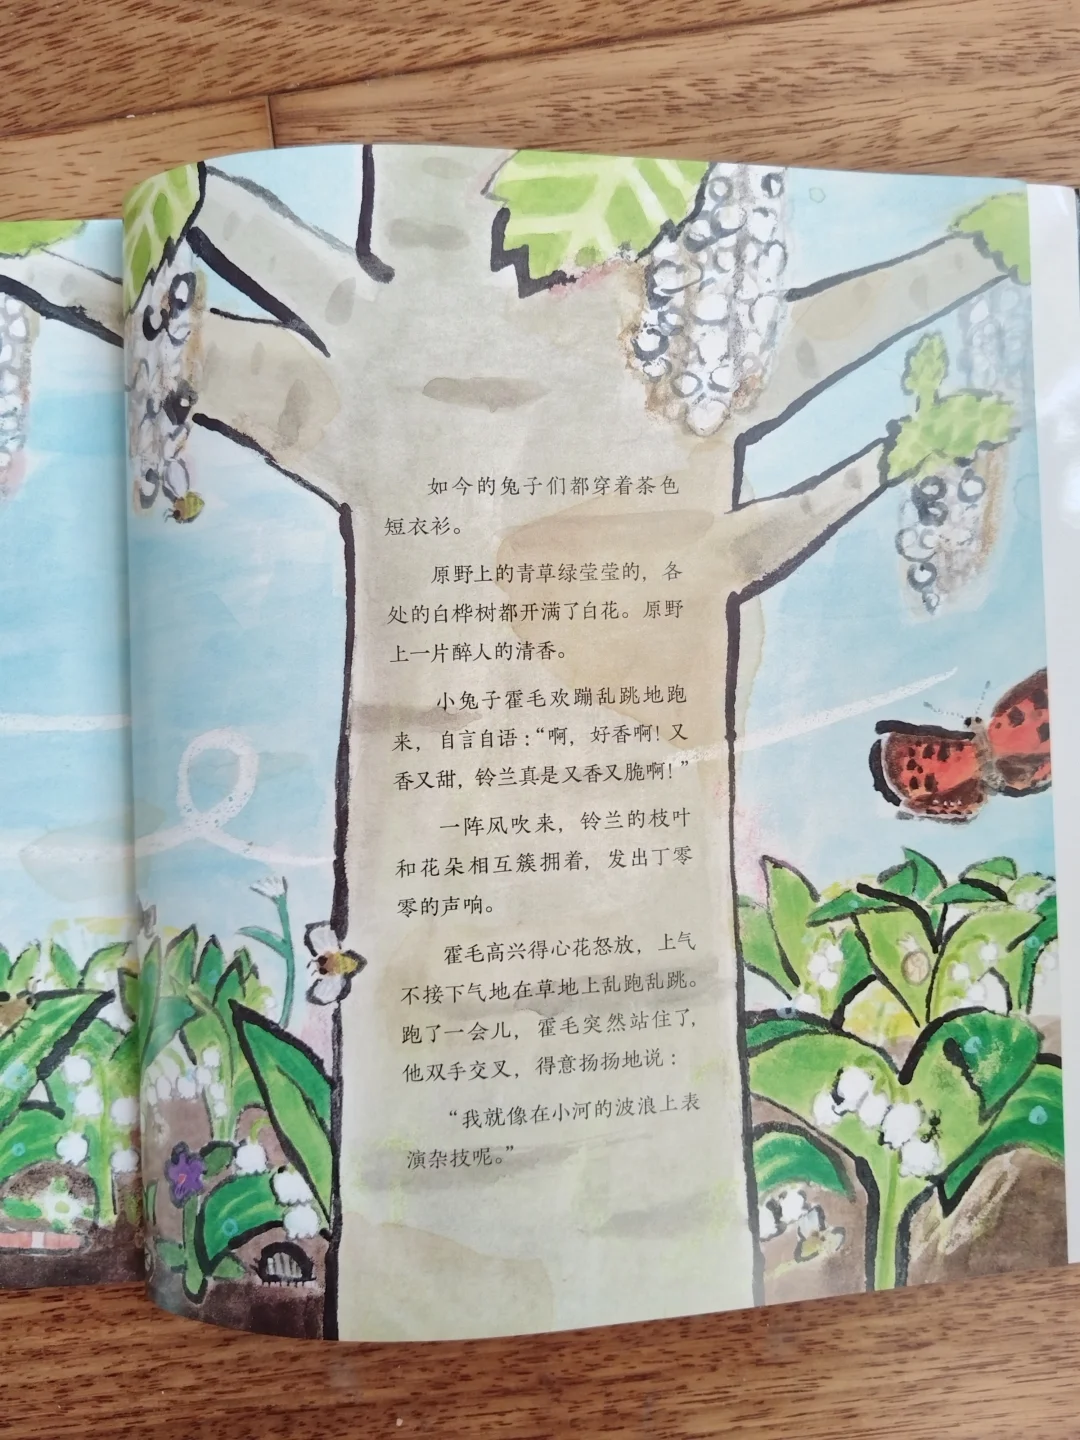 如今的兔子们都穿着茶色
短衣衫。
原野上的青草绿莹莹的，各
处的白桦树都开满了白花。原野
上一片醉人的清香。
小兔子霍毛欢蹦乱跳地跑
来，自言自语：“啊，好香啊！又
香又甜，铃兰真是又香又脆啊！”
一阵风吹来，铃兰的枝叶
和花朵相互簇拥着，发出丁零
零的声响。
霍毛高兴得心花怒放，上气
不接下气地在草地上乱跑乱跳。
跑了一会儿，霍毛突然站住了，
他双手交叉，得意扬扬地说：
“我就像在小河的波浪上表
演杂技呢。”